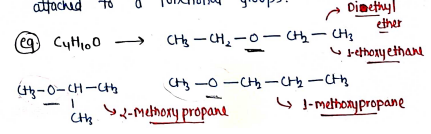 attached to a functional groups.
eg: C4H10O → CH3 – CH2 – O – CH2 – CH3 → Diethyl ether
→ 1-ethoxyethane
CH3 – O – CH – CH3
CH3 → 2-Methoxypropane
CH3 – O – CH2 – CH2 – CH3
→ 1-methoxypropane